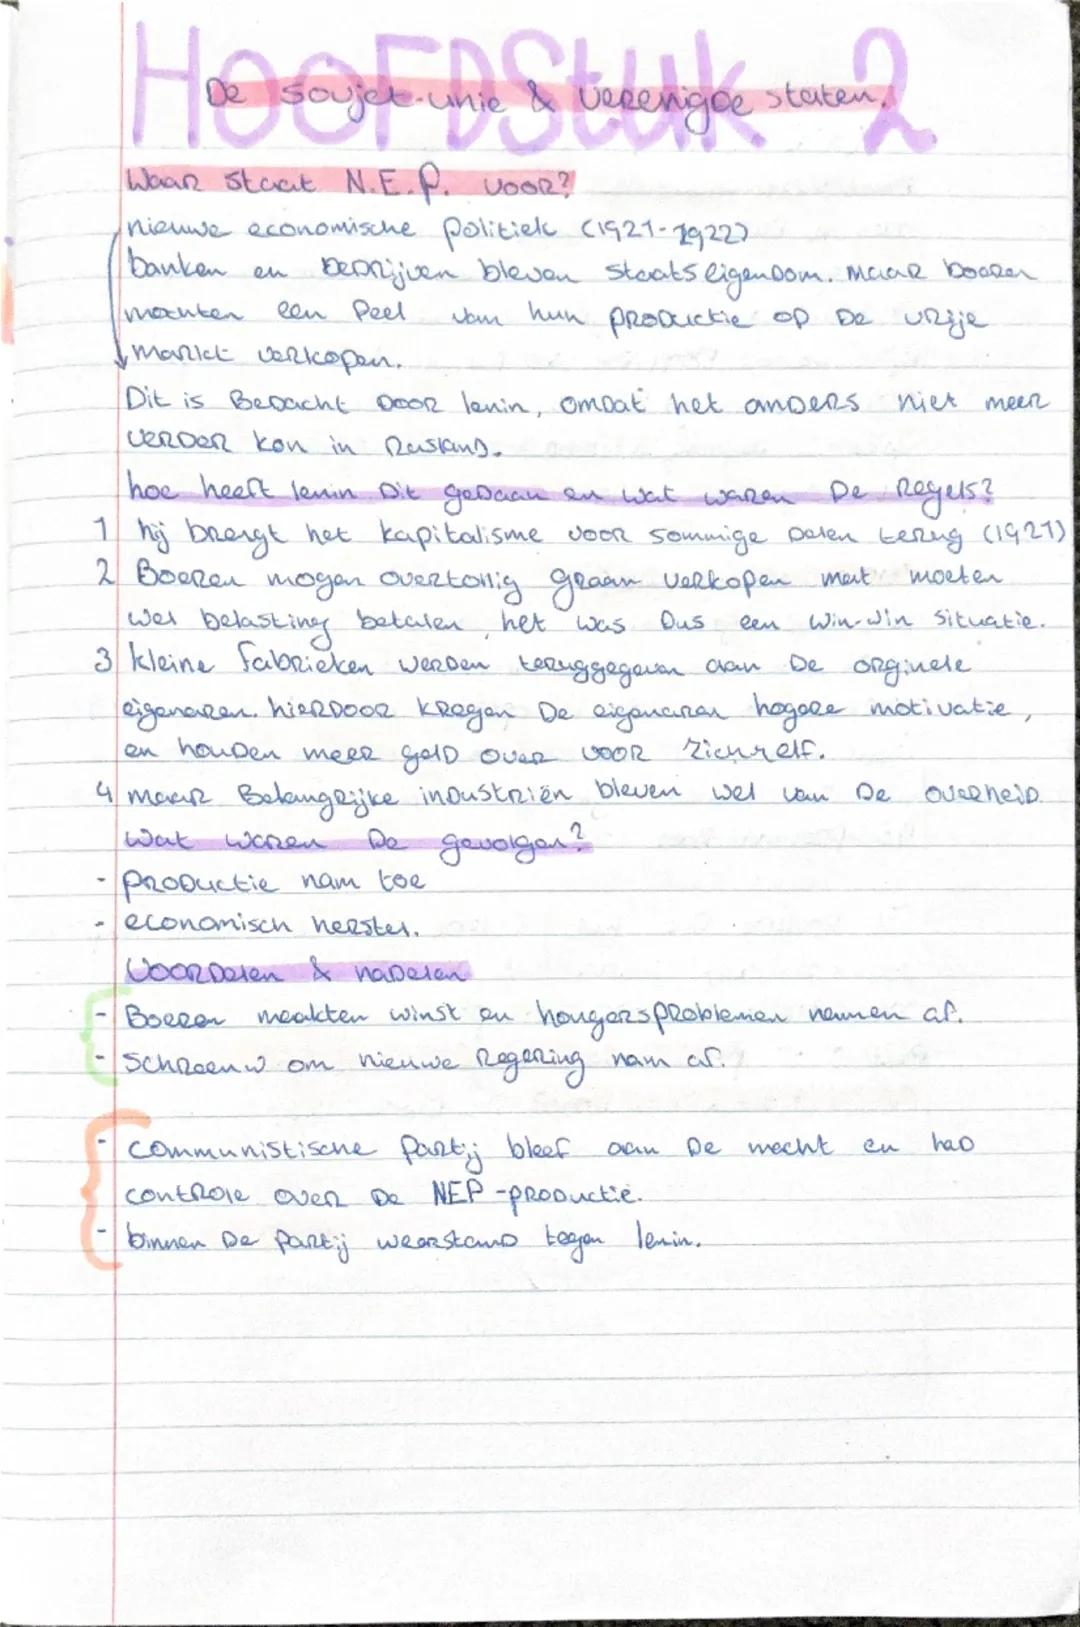 HOOFDStuk 2
De sovjet-unie & verenigde staten.
Waar staat N.E.P. voor?
nieuwe economische politiek (1921-1922)
banken en bedrijven bleven staats eigendom. maar boeren
mochten een deel van hun productie op de vrije
markt verkopen.
Dit is Bedacht door lenin, omdat het anders niet meer
verder kon in Rusland.
hoe heeft lenin dit gedaan en wat waren De Regels?
1 hij brengt het kapitalisme voor sommige delen terug (1921)
2 Boeren mogen overtollig graan verkopen met moeten
wel belasting betalen, het was Dus een win-win situatie.
3 kleine fabrieken werden teruggegeven aan De orginele
eigenaren. hierdoor kregen De eigenaren hogere motivatie,
en houden meer geld over voor zichzelf.
4 maar Belangrijke industriën bleven wel van De overheid.
Wat waren De gevolgen?
- productie nam toe
- economisch herstel.
Voordelen & nadelen
- Boeren maakten winst en hongersproblemen namen af.
- Schreeuw om nieuwe Regering nam af.
- communistische partij bleef aan De macht en had
controle over De NEP-productie.
- binnen De partij weerstand tegen lenin.